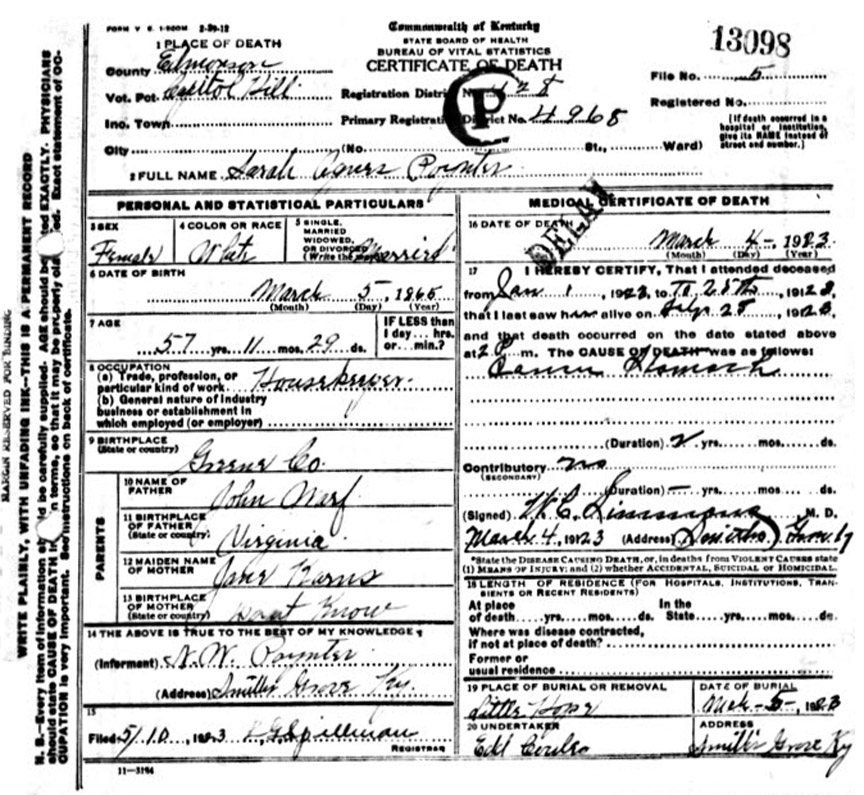 FORM V. S. 1-500M 2-29-12
Commonwealth of Kentucky
STATE BOARD OF HEALTH
BUREAU OF VITAL STATISTICS
CERTIFICATE OF DEATH
13098
1 PLACE OF DEATH
County Edmonson
Vot. Pct Capitol Hill
Inc. Town
City (No. St., Ward)
Registration District No.
Primary Registration District No. 4968
CP
File No. 5
Registered No.
[If death occurred in a hospital or institution, give its NAME instead of street and number.]
2 FULL NAME Sarah Agnes Poynter
PERSONAL AND STATISTICAL PARTICULARS
3 SEX
Female
4 COLOR OR RACE
White
5 SINGLE,
MARRIED
WIDOWED,
OR DIVORCED
(Write the word)
Married
6 DATE OF BIRTH
March 5, 1865
(Month) (Day) (Year)
7 AGE
57 yrs. 11 mos. 29 ds.
IF LESS than
1 day... hrs.
or... min.?
8 OCCUPATION
(a) Trade, profession, or
particular kind of work Housekeeper
(b) General nature of industry
business or establishment in
which employed (or employer)
9 BIRTHPLACE
(State or country)
Greene Co.
PARENTS
10 NAME OF
FATHER
John
11 BIRTHPLACE
OF FATHER
(State or country)
Virginia
12 MAIDEN NAME
OF MOTHER
Jane Karns
13 BIRTHPLACE
OF MOTHER
(State or country)
Dont Know
14 THE ABOVE IS TRUE TO THE BEST OF MY KNOWLEDGE
(Informant) N. W. Poynter
(Address) Smiths Grove Ky.
15
Filed 5/10, 1923 Spillman
REGISTRAR
11-3184
MEDICAL CERTIFICATE OF DEATH
DELAY
16 DATE OF DEATH
March 4, 1923
(Month) (Day) (Year)
17 I HEREBY CERTIFY, That I attended deceased
from Jan 1, 1923, to 25th, 1923,
that I last saw h alive on 25, 192
and that death occurred on the date stated above
at 2 P m. The CAUSE OF DEATH was as follows:
Cancer Stomach
(Duration) 2 yrs. mos. ds.
Contributory no
(SECONDARY)
(Duration) yrs. mos. ds.
(Signed) W. C. Simmons M. D.
March 4, 1923 (Address) Smiths Grove Ky
*State the DISEASE CAUSING DEATH, or, in deaths from VIOLENT CAUSES state
(1) MEANS OF INJURY; and (2) whether ACCIDENTAL, SUICIDAL OR HOMICIDAL.
18 LENGTH OF RESIDENCE (FOR HOSPITALS, INSTITUTIONS, TRANSIENTS OR RECENT RESIDENTS)
At place of death yrs. mos. ds. In the State yrs. mos. ds.
Where was disease contracted,
if not at place of death?
Former or
usual residence
19 PLACE OF BURIAL OR REMOVAL
Little Hope
DATE OF BURIAL
Mch 5, 1923
20 UNDERTAKER
Edd
ADDRESS
Smiths Grove Ky
MARGIN RESERVED FOR BINDING
WRITE PLAINLY, WITH UNFADING INK—THIS IS A PERMANENT RECORD
N. B.—Every item of information should be carefully supplied. AGE should be stated EXACTLY. PHYSICIANS
should state CAUSE OF DEATH in plain terms, so that it may be properly classified. Exact statement of OCCUPATION is very important. See instructions on back of certificate.